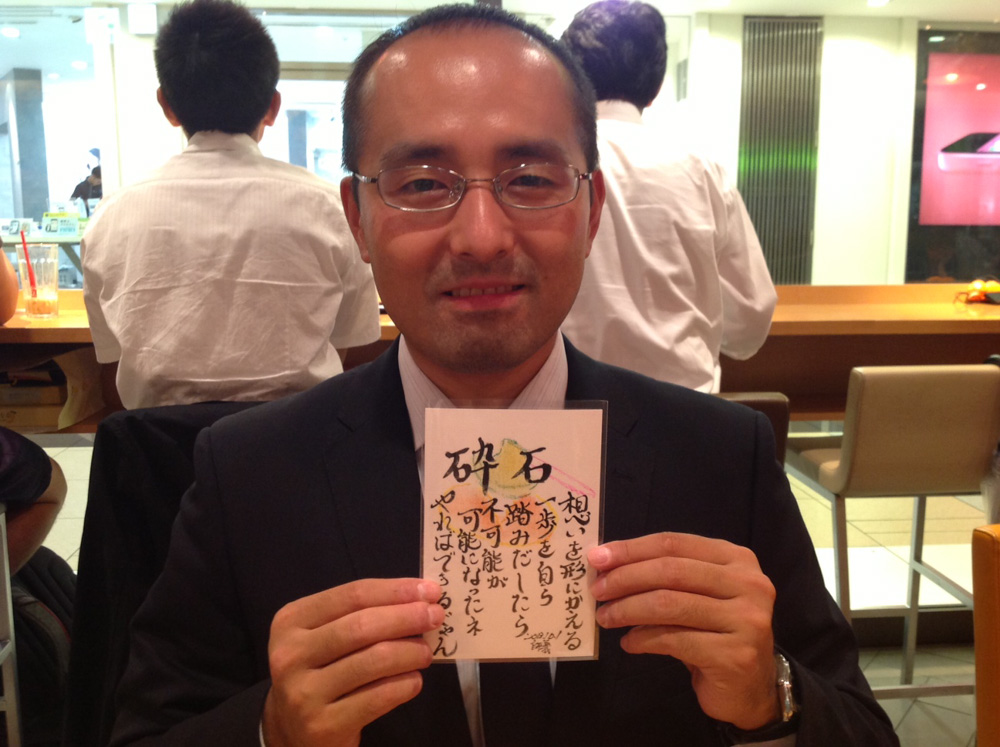 石砕
想いを形にかえる
一歩を自ら
踏みだしたら
不可能が
可能になったネ
やればできるじゃん